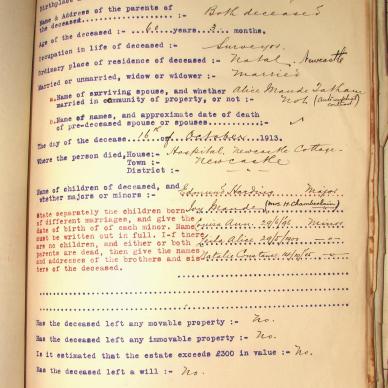 Birthplace
Name & Address of the parents of
the deceased :- Both deceased
Age of the deceased :- years 3 months.
Occupation in life of deceased :- Surveyor.
Ordinary place of residence of deceased :- Natal, Newcastle
Married or unmarried, widow or widower :- Married
a. Name of surviving spouse, and whether Alice Maude Tatham
married in community of property, or not :- Not (Antenuptial contract)
b. Name of names, and approximate date of death
of pre-deceased spouse or spouses :-
The day of the decease 16th of October 1913.
Where the person died, House:- Hospital, Newcastle Cottage.
Town :- Newcastle
District :-
Name of children of deceased, and Edmund Harding Major
whether majors or minors :- Maude (Mrs H. Chamberlain)
State separately the children born Anna Minor
of different marriages, and give the Alice
date of birth of of each minor. Name Natalie
must be written out in full. I-f there
are no children, and either or both
parents are dead, then give the names
and addresses of the brothers and sis-
ters of the deceased.
Has the deceased left any movable property :- No.
Has the deceased left any immovable property :- No.
Is it estimated that the estate exceeds £300 in value :- No.
Has the deceased left a will :- No.